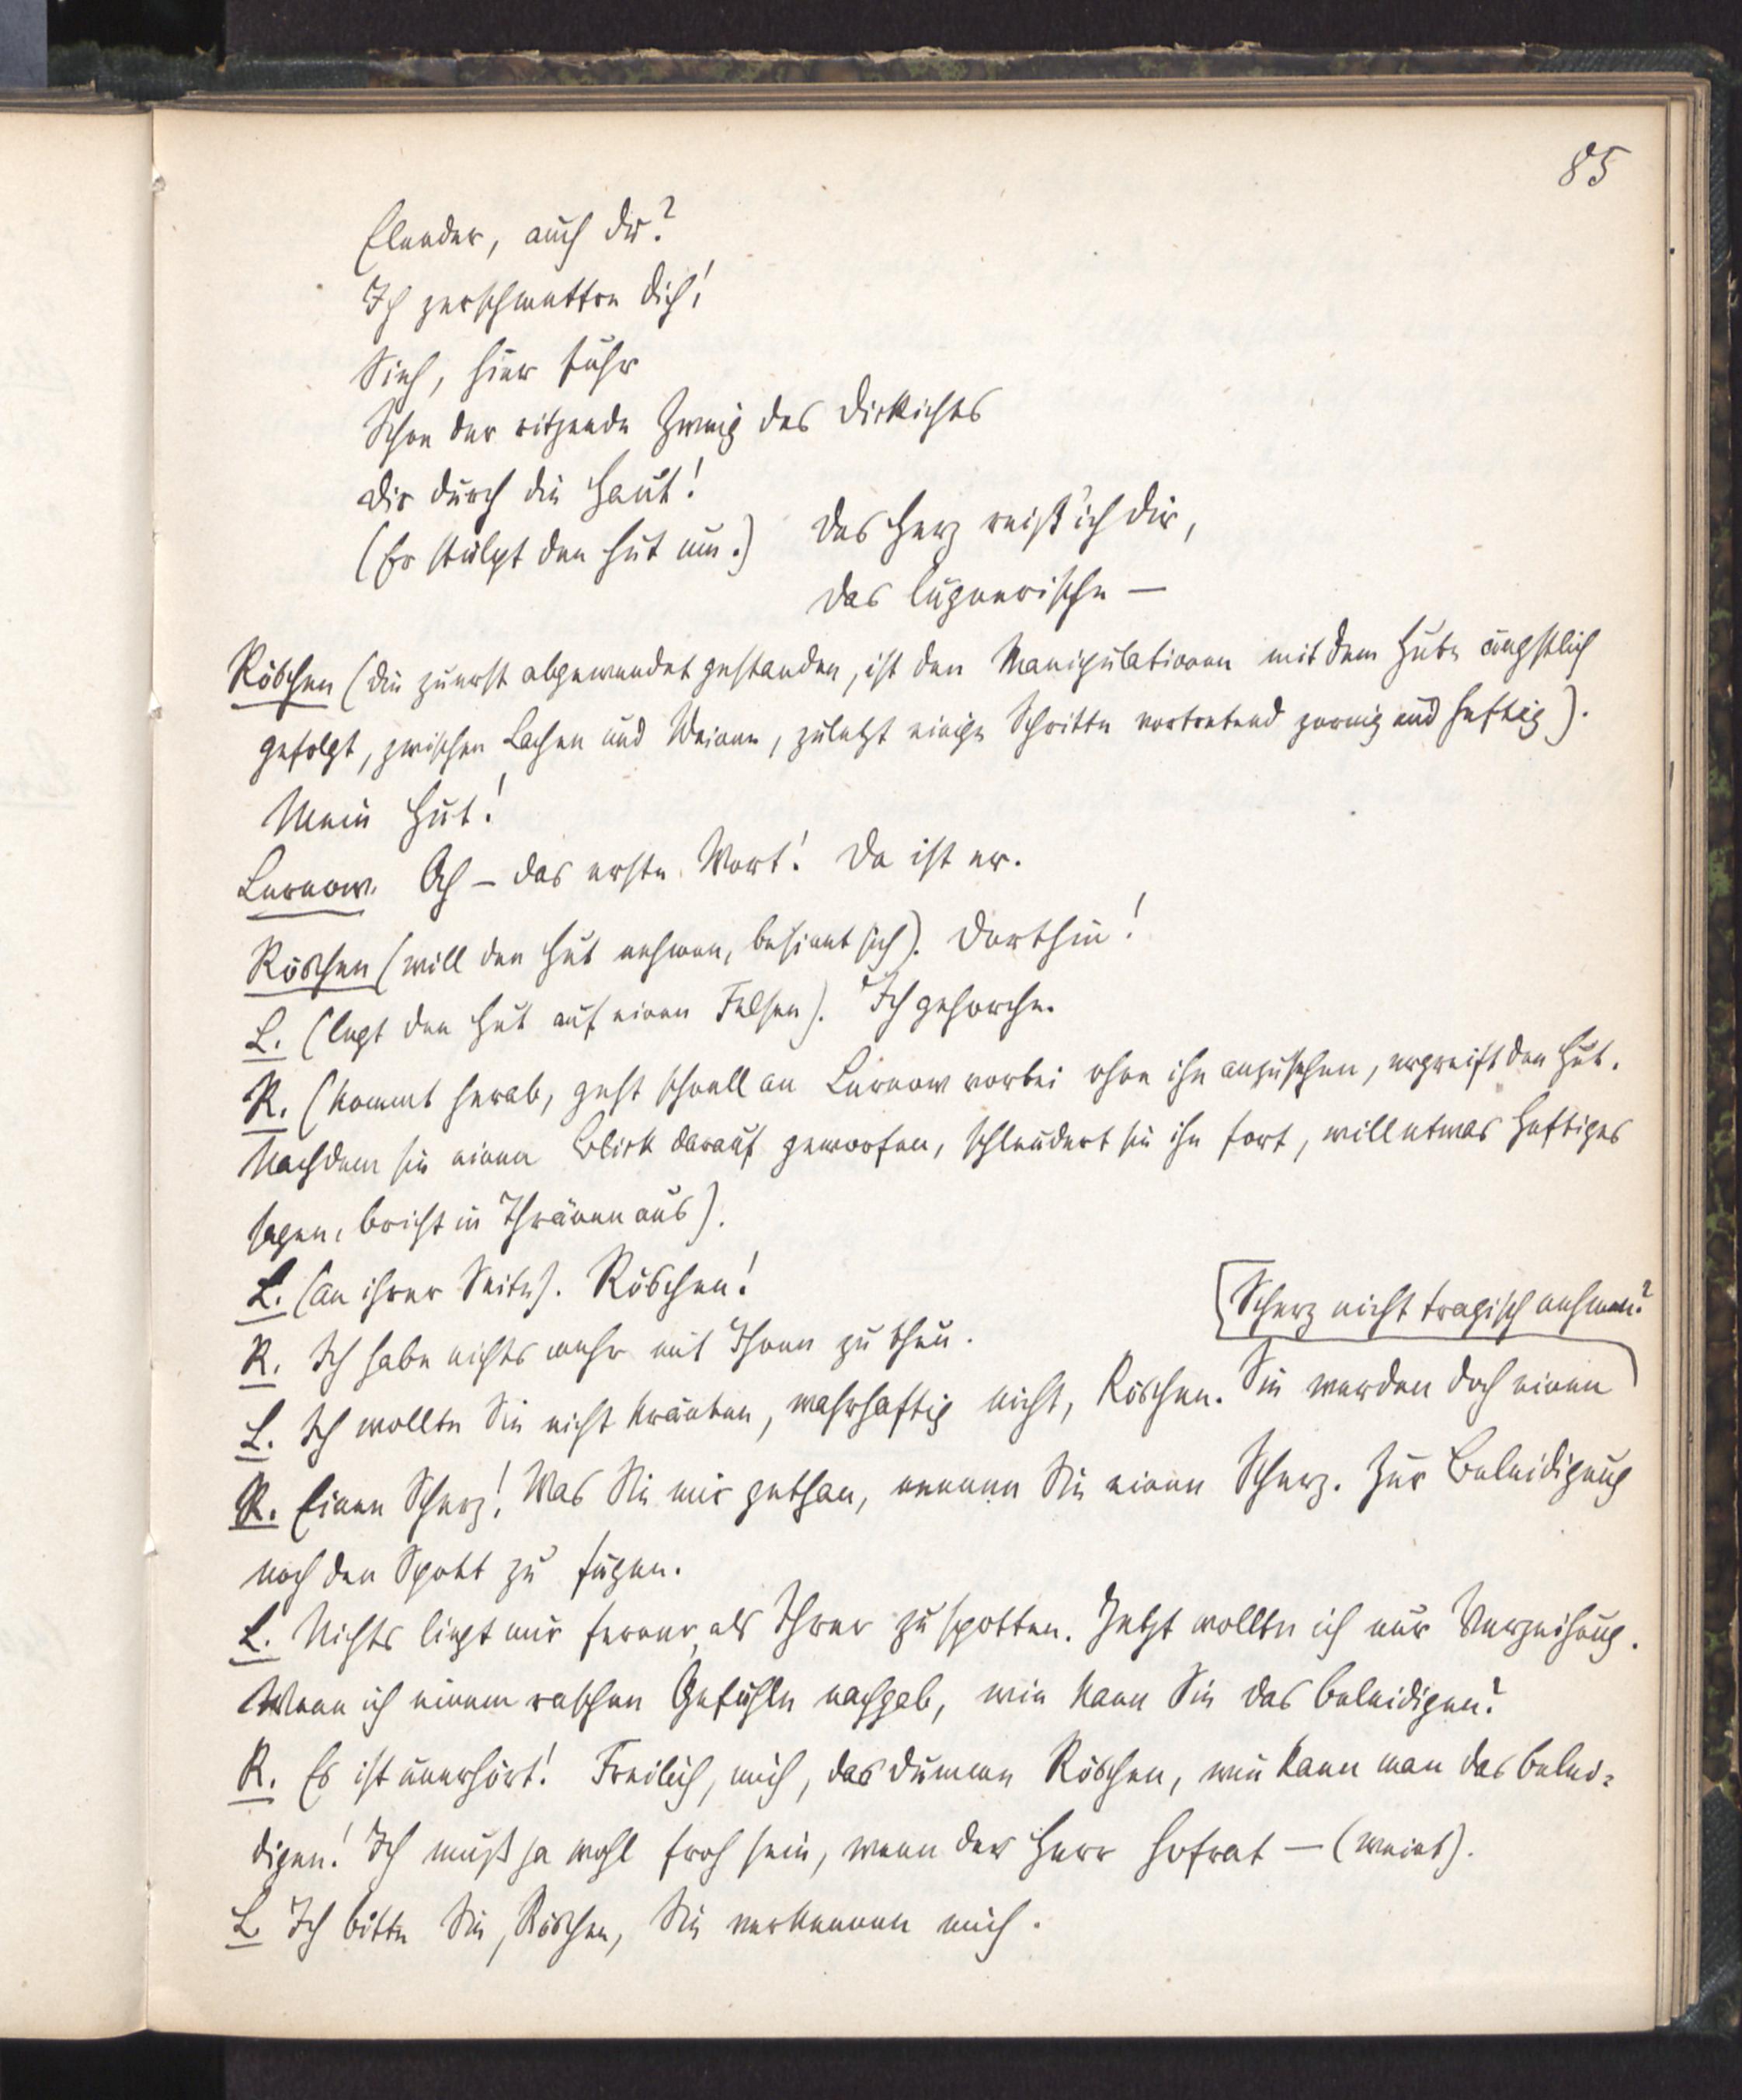 85
Elender, auch du?
Ich zerschmettre dich!
Sieh, hier fuhr
Schon der ritzende Zweig des Dickichts
Dir durch die Haut!
(Er stülpt den Hut um.) Das Herz reiß' ich dir,
Das lügnerische —
Röschen (die zuerst abgewendet gestanden, ist den Manipulationen mit dem Hute ängstlich
gefolgt, zwischen Lachen und Weinen, zuletzt einige Schritte vortretend zornig und heftig).
Mein Hut!
Lurnow. Ach – das erste Wort! Da ist er.
Röschen (will den Hut nehmen, besinnt sich). Dorthin!
L. (legt den Hut auf einen Felsen). Ich gehorche.
R. (kommt herab, geht schnell an Lurnow vorbei ohne ihn anzusehen, ergreift den Hut.
Nachdem sie einen Blick darauf geworfen, schleudert sie ihn fort, will etwas Heftiges
sagen, bricht in Thränen aus).
L. (an ihrer Seite). Röschen!
R. Ich habe nichts mehr mit Ihnen zu thun.
L. Ich wollte Sie nicht kränken, wahrhaftig nicht, Röschen. Sie werden doch einen
Scherz nicht tragisch nehmen?
R. Einen Scherz! Was Sie mir gethan, nennen Sie einen Scherz. Zur Beleidigung
noch den Spott zu fügen.
L. Nichts liegt mir ferner, als Ihrer zu spotten. Jetzt wollte ich nur Verzeihung.
Wenn ich einem raschen Gefühle nachgab, wie kann Sie das beleidigen?
R. Es ist unerhört! Freilich, mich, das dumme Röschen, wie kann man das belei-
digen! Ich muß ja wohl froh sein, wenn der Herr Hofrat — (weint).
L. Ich bitte Sie, Röschen, Sie verkennen mich.